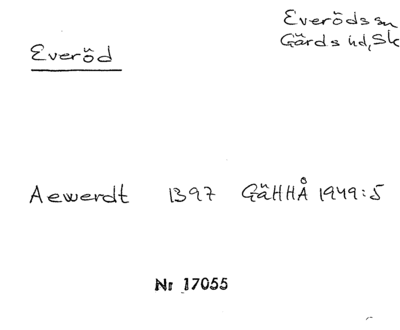 Everöds sn
Gärds hd, Sk
Everöd
Aewerdt 1397 GäHHÅ 1949:5
Nr 17055